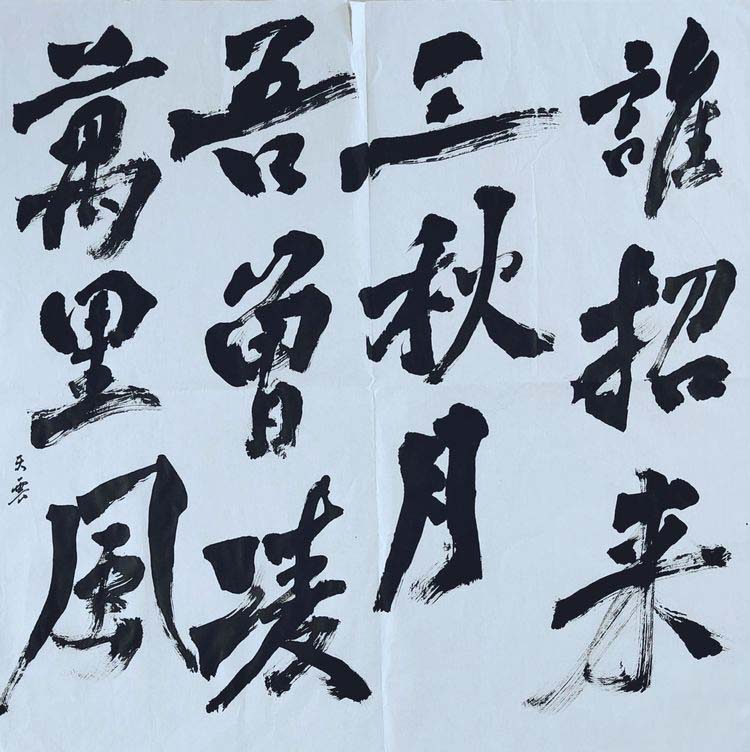 誰招来
三秋月
吾曽凌
萬里風
天震